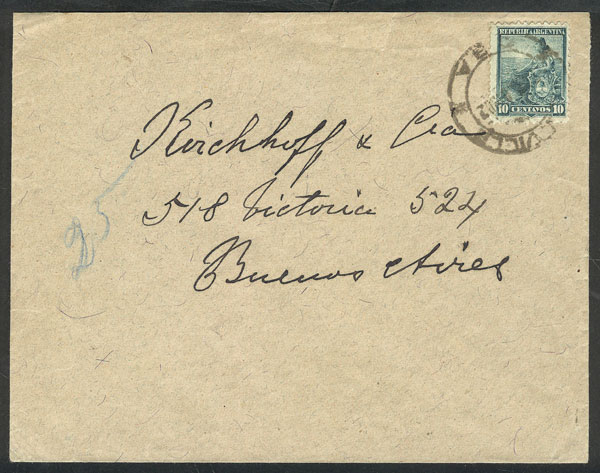 REPUBLICA ARGENTINA
10 CENTAVOS 10
Kirchhoff & Cia
518 Victoria 524
Buenos Aires
25